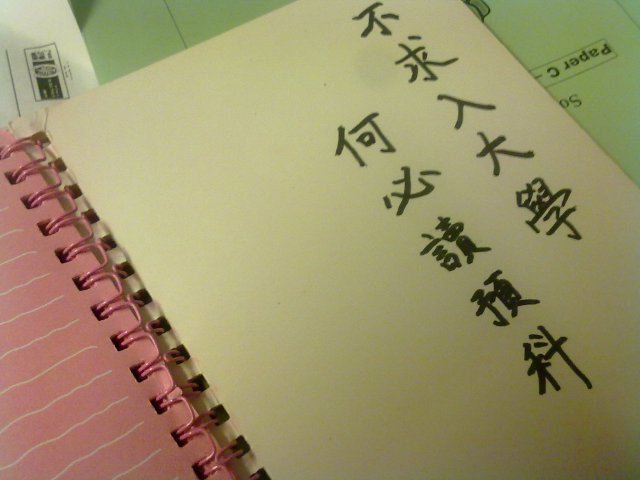 不求入大學
何必讀預科
Paper C